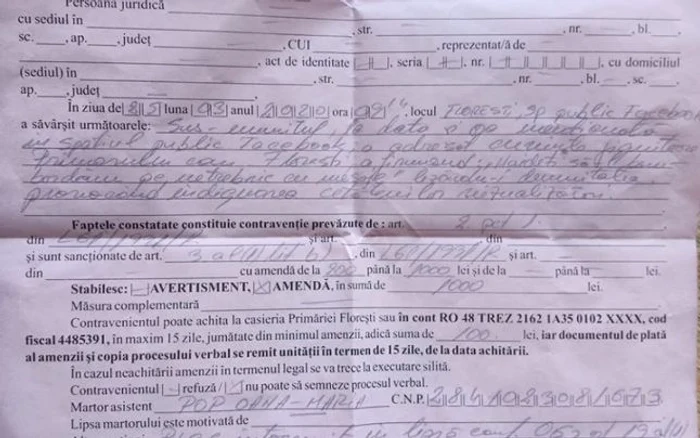 Persoană juridică
cu sediul în , str. , nr. , bl.
sc. , ap. , județ , CUI , reprezentat/ă de
, act de identitate |#|, seria |#|, nr. | | | | | | |, cu domiciliul
(sediul) în , str. , nr. , bl. , sc. ,
ap. , județ
În ziua de|25| luna|03| anul|2020| ora , locul FLOREȘTI sp public Facebook
a săvârșit următoarele: Sus-numitul la data
în spațiul public Facebook, a adresat cuvinte jignitoare
Primarului com Floresti afirmand "Haideți să îl bom-
bardăm pe netrebnic cu mesaje" lezandu-i demnitatea,
provocând indignarea cetatenilor vizualizatori.
Faptele constatate constituie contravenție prevăzute de : art. 2 pct 1
din L61/1991/R și art. din
și sunt sancționate de art. 3 al(1) lit b) , din L61/1991/R și art.
din cu amendă de la 200 până la 1000 lei și de la — până la lei.
Stabilesc: |—|AVERTISMENT, |X|AMENDĂ, în sumă de 1000 lei.
Măsura complementară
Contravenientul poate achita la casieria Primăriei Florești sau în cont RO 48 TREZ 2162 1A35 0102 XXXX, cod
fiscal 4485391, în maxim 15 zile, jumătate din minimul amenzii, adică suma de 100 lei, iar documentul de plată
al amenzii și copia procesului verbal se remit unității în termen de 15 zile, de la data achitării.
În cazul neachitării amenzii in termenul legal se va trece la executare silită.
Contravenientul |—| refuză/ |X| nu poate să semneze procesul verbal.
Martor asistent POP OANA-MARIA C.N.P.
Lipsa martorului este motivată de